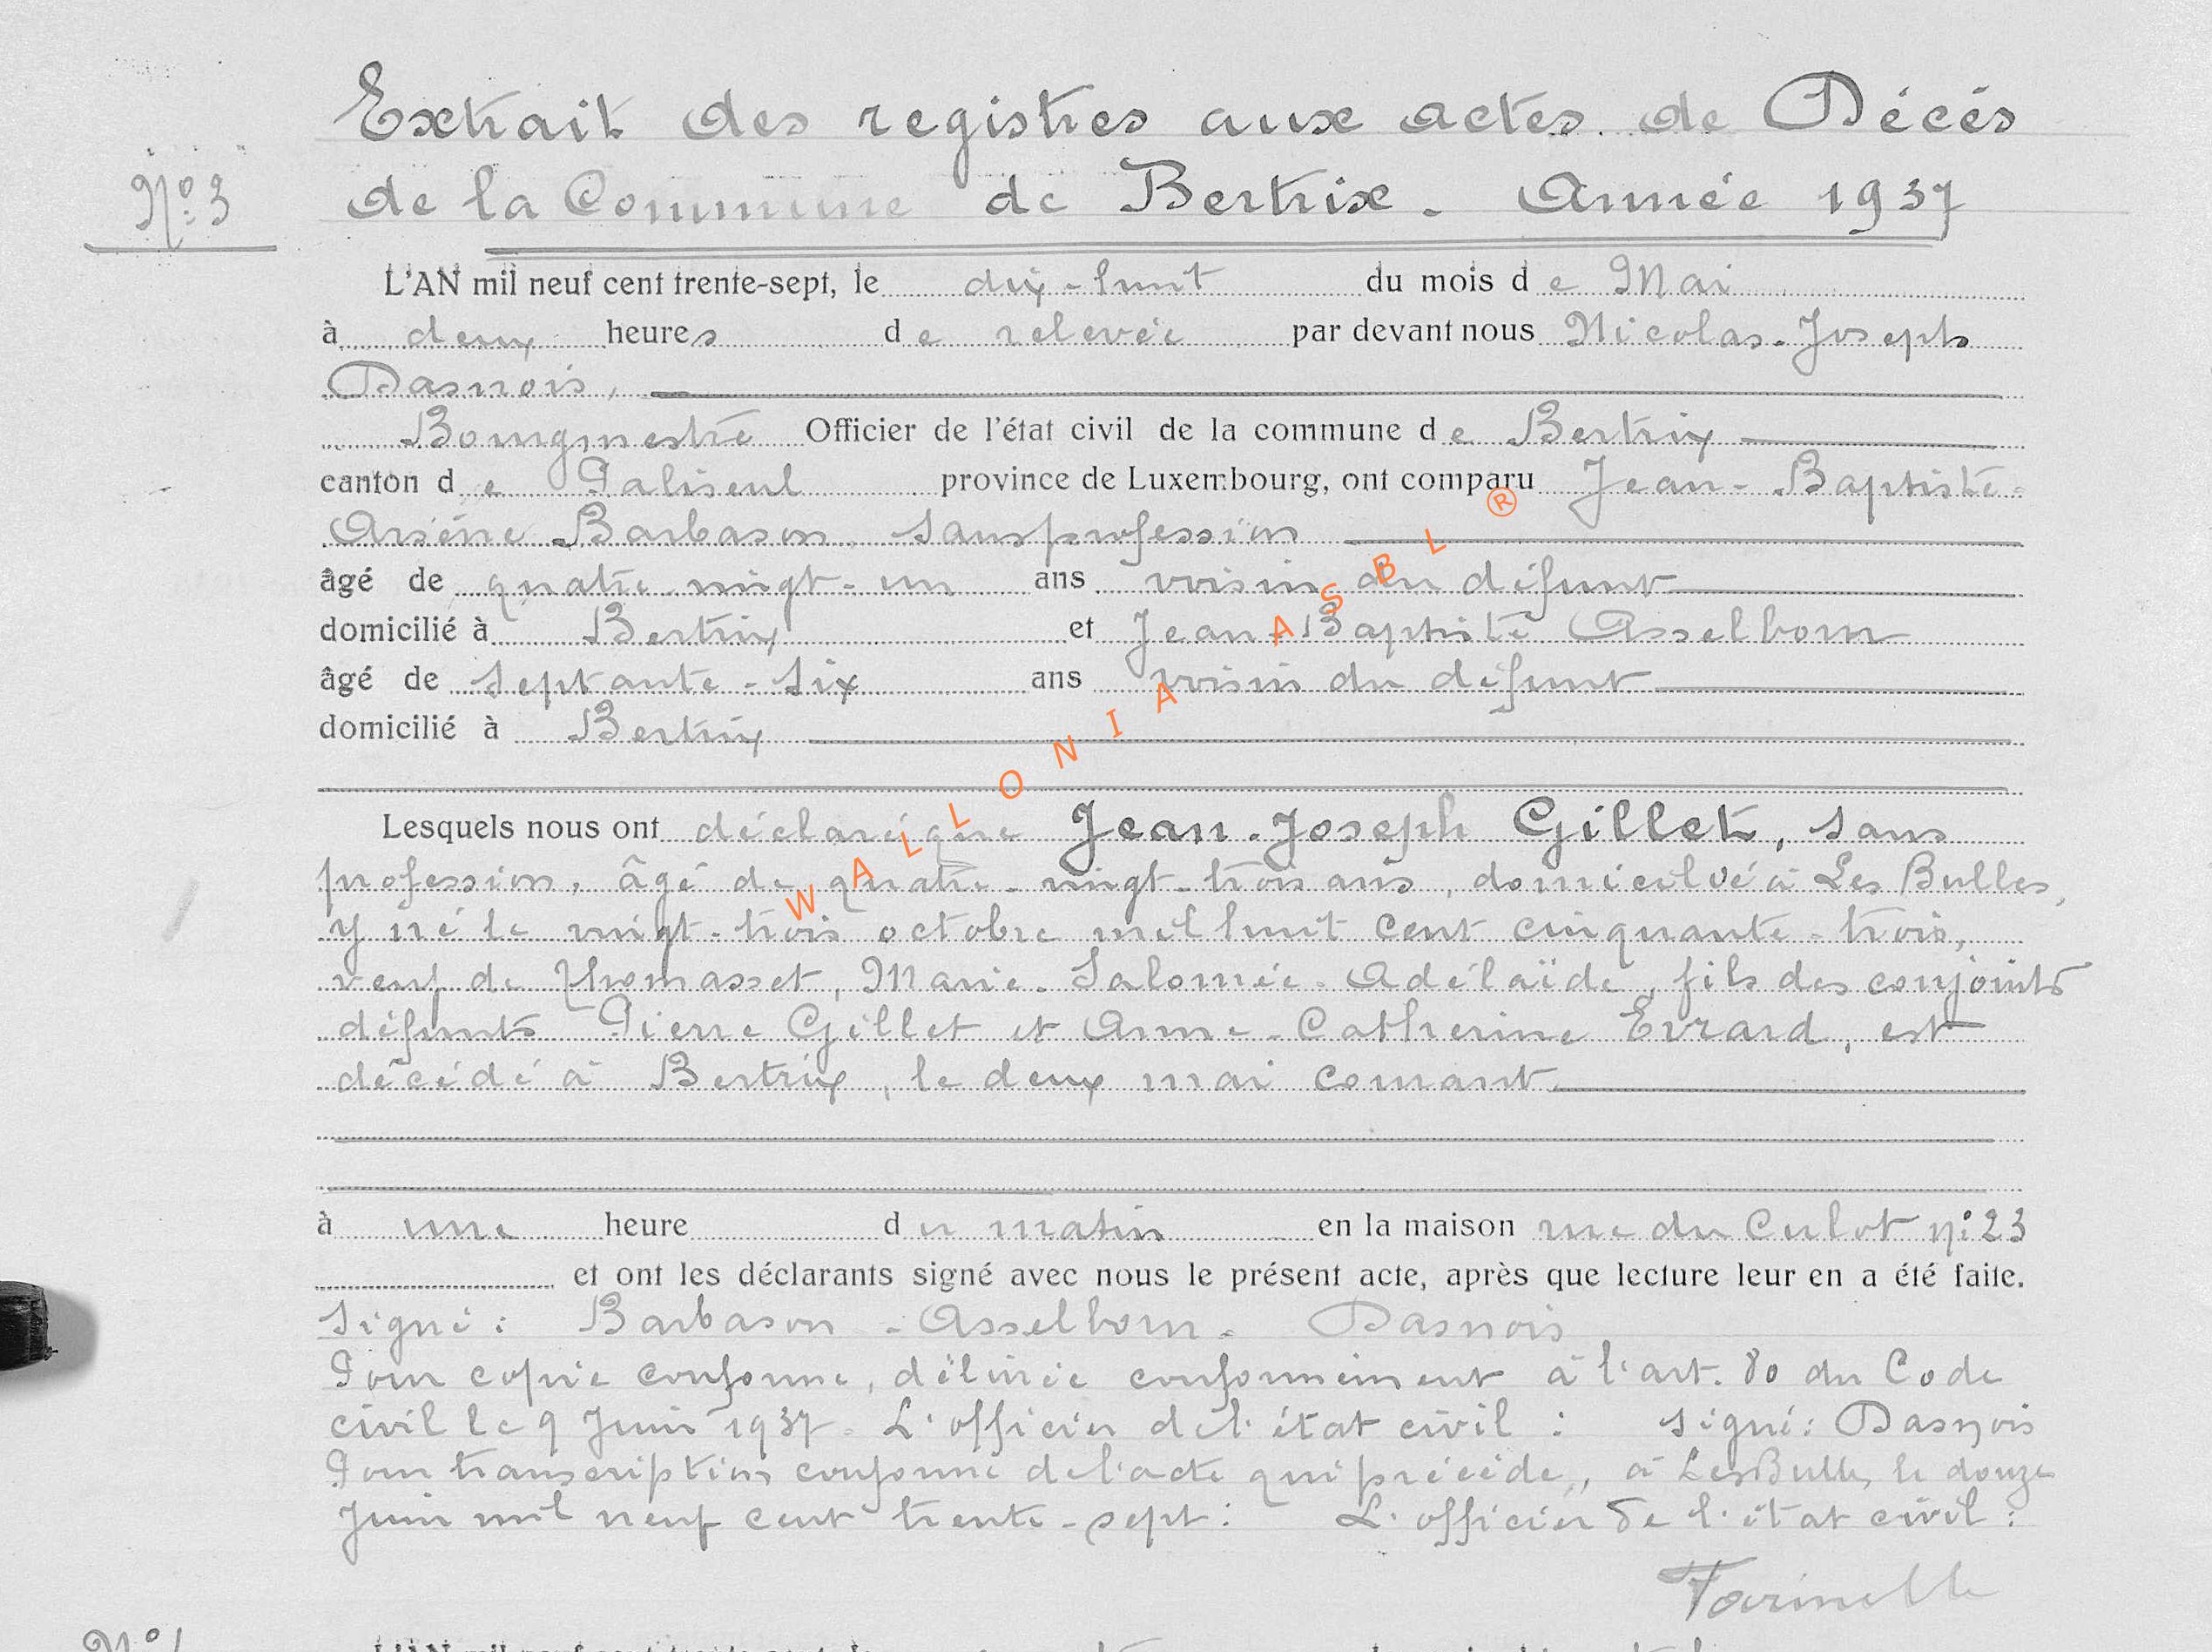 Extrait des registres aux actes de Décés
de la Commune de Bertrix - Année 1937
N° 3
L'AN mil neuf cent trente-sept, le dix-huit du mois de Mai
à deux heures de relevée par devant nous Nicolas-Joseph
Dasnois,
Bourgmestre Officier de l'état civil de la commune de Bertrix
canton de Paliseul province de Luxembourg, ont comparu Jean-Baptiste-
Arsène Barbason, sans profession
âgé de quatre-vingt-un ans voisin du défunt
domicilié à Bertrix et Jean-Baptiste Asselborn
âgé de septante-six ans voisin du défunt
domicilié à Bertrix
Lesquels nous ont déclaré que Jean-Joseph Gillet, sans
profession, âgé de quatre-vingt-trois ans, domicilié à Les Bulles,
y né le vingt-trois octobre mil huit cent cinquante-trois,
veuf de Thomasset, Marie-Salomée-Adélaïde, fils des conjoints
défunts Pierre Gillet et Anne-Catherine Evrard, est
décédé à Bertrix, le deux mai courant
à une heure du matin en la maison rue du Culot n° 23
et ont les déclarants signé avec nous le présent acte, après que lecture leur en a été faite.
Signé : Barbason - Asselborn - Dasnois
Pour copie conforme, délivrée conformément à l'art. 80 du Code
civil le 9 Juin 1937. L'officier de l'état civil : signé : Dasnois
Pour transcription conforme de l'acte qui précède, à Les Bulles, le douze
Juin mil neuf cent trente-sept : L'officier de l'état civil :
Farinelle
WALLONIA ASBL ®